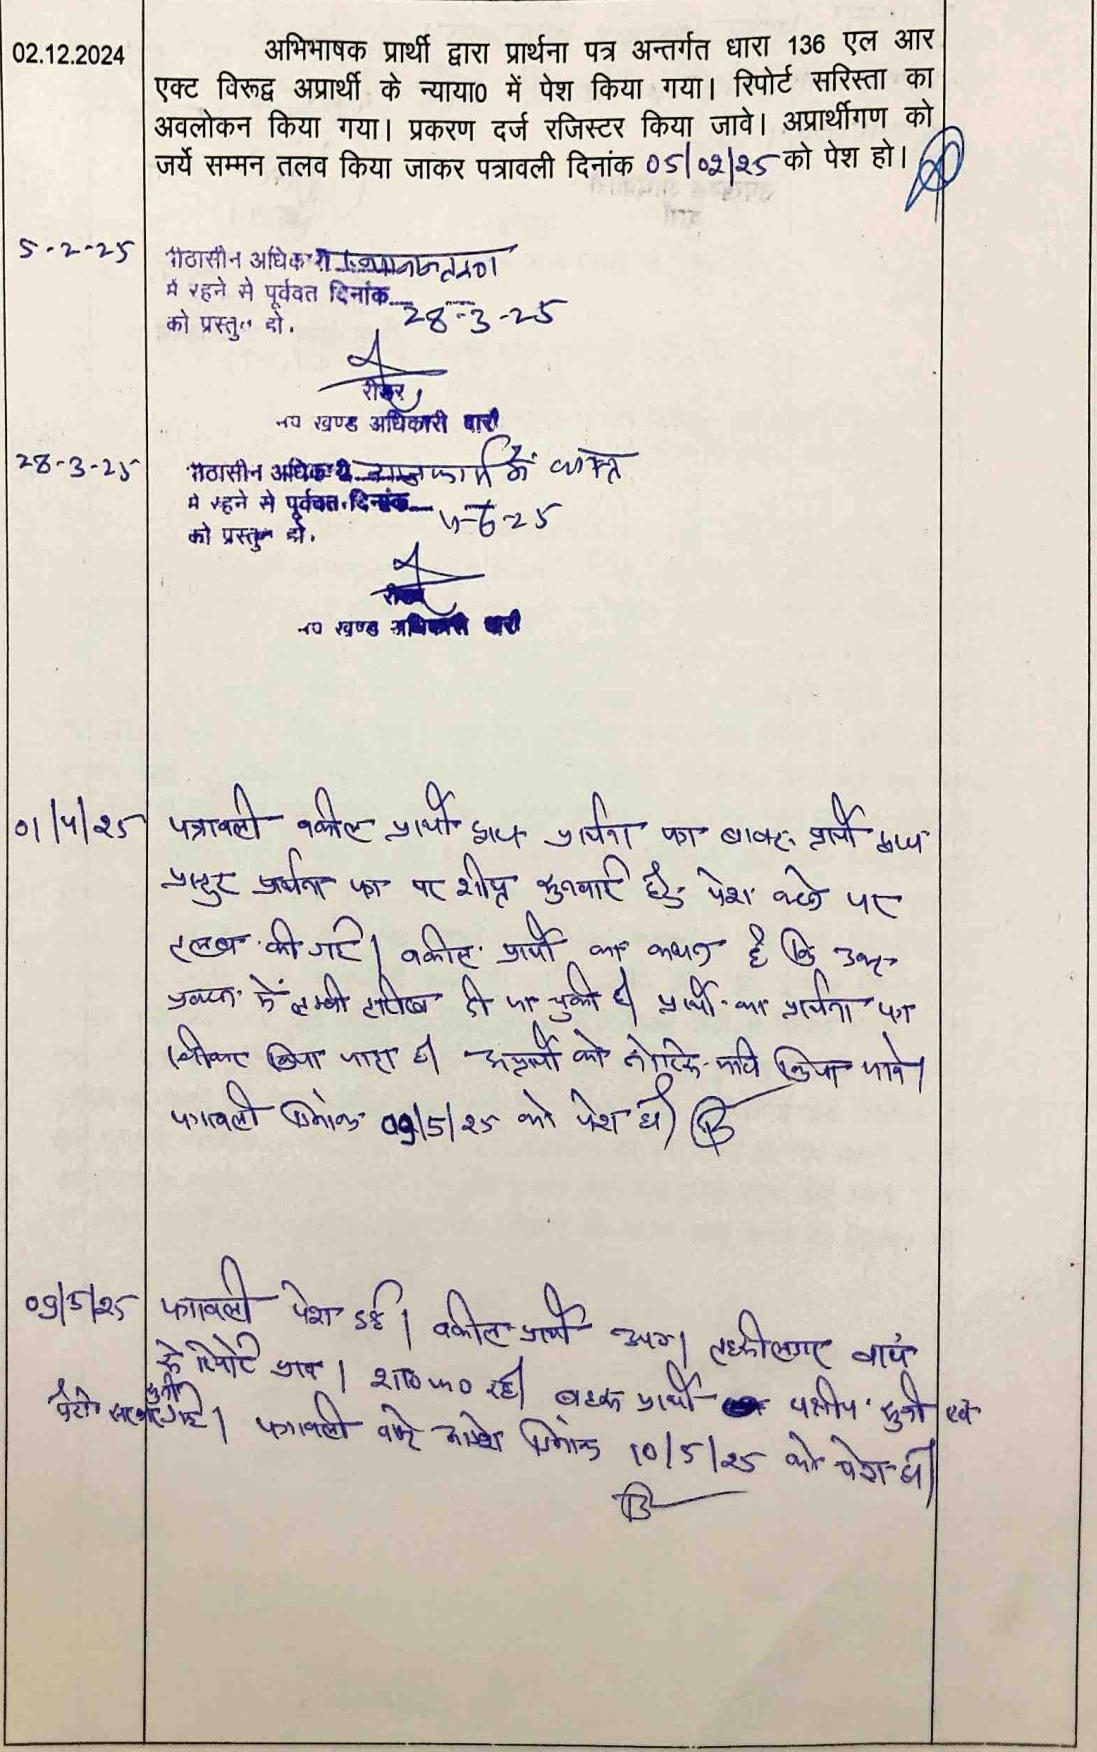 02.12.2024
अभिभाषक प्रार्थी द्वारा प्रार्थना पत्र अन्तर्गत धारा 136 एल आर
एक्ट विरूद्व अप्रार्थी के न्याया0 में पेश किया गया। रिपोर्ट सरिस्ता का
अवलोकन किया गया। प्रकरण दर्ज रजिस्टर किया जावे। अप्रार्थीगण को
जर्ये सम्मन तलव किया जाकर पत्रावली दिनांक 05/02/25 को पेश हो।
5-2-25
पीठासीन अधिकारी
में रहने से पूर्ववत दिनांक 28-3-25
को प्रस्तुत हो.
रीडर
उप खण्ड अधिकारी बारी
28-3-25
पीठासीन अधिकारी
में रहने से पूर्ववत दिनांक 4-6-25
को प्रस्तुत हो.
रीडर
उप खण्ड अधिकारी बारी
01/4/25
पत्रावली वकील प्रार्थी द्वारा प्रार्थना पत्र बावत प्रार्थी द्वारा
प्रस्तुत प्रार्थना पत्र पर शीघ्र सुनवाई हेतु पेश करने पर
तलब की गई। वकील प्रार्थी का कथन है कि उक्त
प्रकरण में लम्बी तारीख दी जा चुकी है। प्रार्थी का प्रार्थना पत्र
स्वीकार किया जाता है। अप्रार्थी को नोटिस जारी किया जावे।
पत्रावली दिनांक 09/5/25 को पेश हो।
09/5/25
पत्रावली पेश हुई। वकील प्रार्थी उप0। तहसीलदार बारी
से रिपोर्ट प्राप्त। शा0फा0 रहे। बहस प्रार्थी एक पक्षीय सुनी
गई। पत्रावली वास्ते आदेश दिनांक 10/5/25 को पेश हो।